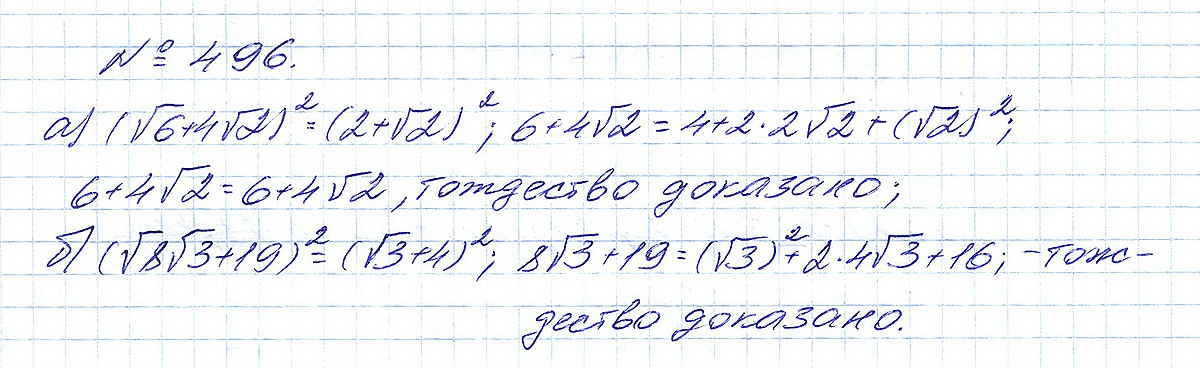 № 496.
а) (√6+4√2)² = (2+√2)²; 6+4√2 = 4+2·2√2+(√2)²;
6+4√2 = 6+4√2, тождество доказано;
б) (√8√3+19)² = (√3+4)²; 8√3+19 = (√3)²+2·4√3+16; - тож-
дество доказано.